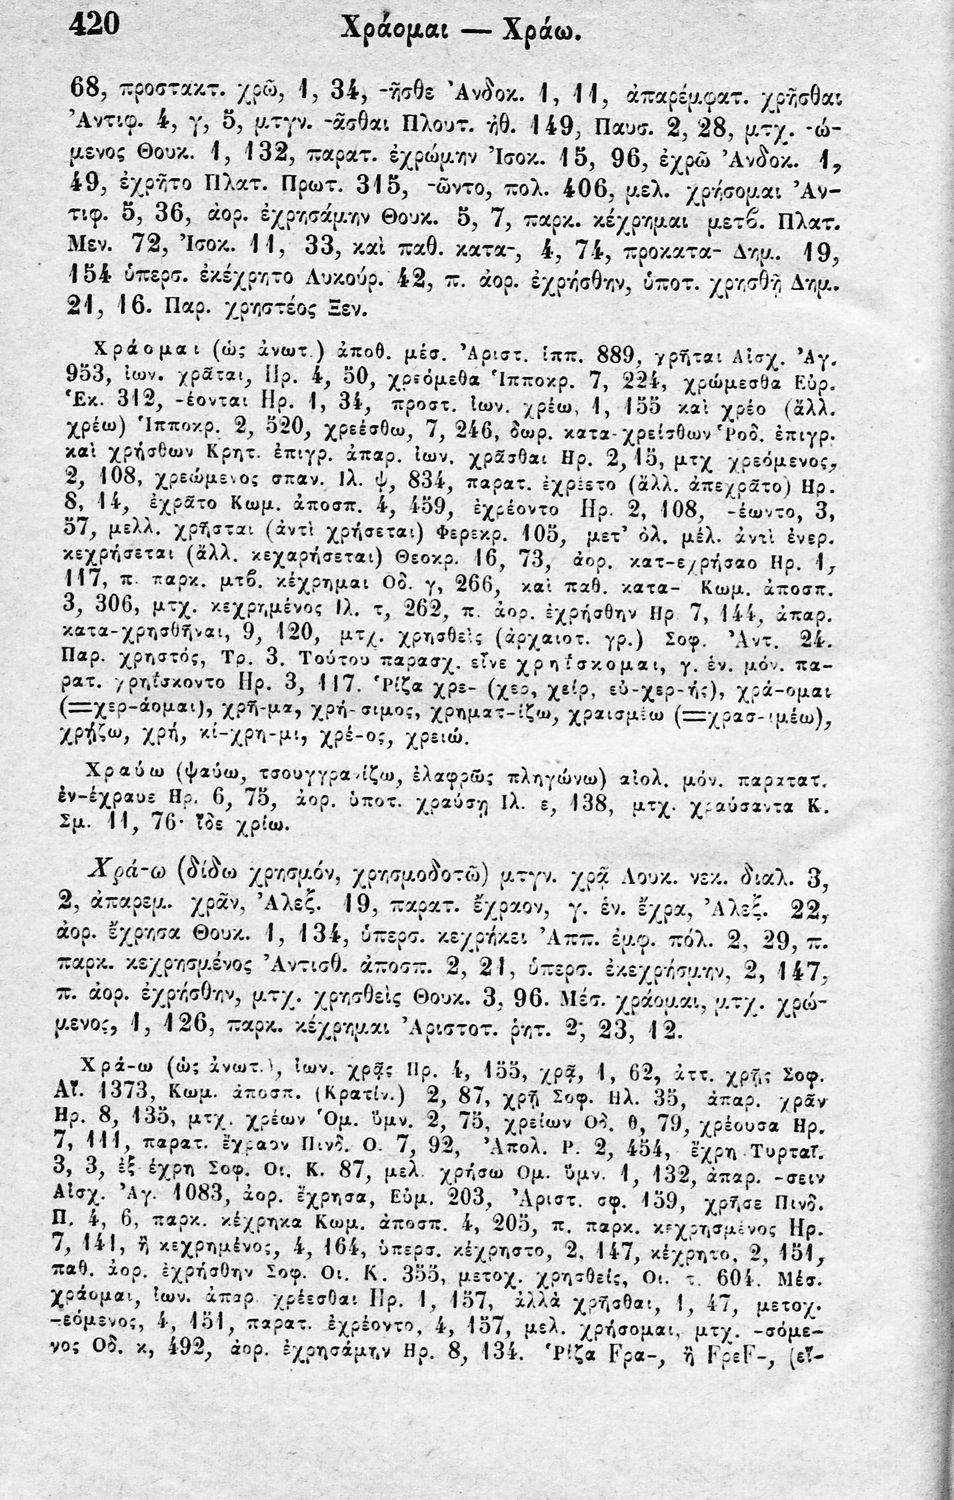 420 Χράομαι — Χράω.
68, προστακτ. χρῶ, 1, 34, -ῆσθε Ἀνδοκ. 1, 11, ἀπαρέμφατ. χρῆσθαι
Ἀντιφ. 4, γ, 5, μτγν. -ᾶσθαι Πλουτ. ἠθ. 149, Παυσ. 2, 28, μτχ. -ώ-
μενος Θουκ. 1, 132, παρατ. ἐχρώμην Ἰσοκ. 15, 96, ἐχρῶ Ἀνδοκ. 1,
49, ἐχρῆτο Πλατ. Πρωτ. 315, -ῶντο, πολ. 406, μελ. χρήσομαι Ἀν-
τιφ. 5, 36, ἀορ. ἐχρησάμην Θουκ. 5, 7, παρκ. κέχρημαι μετβ. Πλατ.
Μεν. 72, Ἰσοκ. 11, 33, καὶ παθ. κατα-, 4, 74, προκατα- Δημ. 19,
154 ὑπερσ. ἐκέχρητο Λυκούρ. 42, π. ἀορ. ἐχρήσθην, ὑποτ. χρησθῇ Δημ.
21, 16. Παρ. χρηστέος Ξεν.
Χράομαι (ὡς ἀνωτ.) ἀποθ. μέσ. Ἀριστ. ἱππ. 889, χρῆται Αἰσχ. Ἀγ.
953, ἰων. χρᾶται, Ηρ. 4, 50, χρεόμεθα Ἱπποκρ. 7, 224, χρώμεσθα Εὐρ.
Ἑκ. 312, -έονται Ηρ. 1, 34, προστ. ἰων. χρέω, 1, 155 καὶ χρέο (ἄλλ.
χρέω) Ἱπποκρ. 2, 520, χρεέσθω, 7, 246, δωρ. κατα-χρείσθων Ῥοδ. ἐπιγρ.
καὶ χρήσθων Κρητ. ἐπιγρ. ἀπαρ. ἰων. χρᾶσθαι Ηρ. 2, 15, μτχ χρεόμενος,
2, 108, χρεώμενος σπαν. Ιλ. ψ, 834, παρατ. ἐχρέετο (ἄλλ. ἀπεχρᾶτο) Ηρ.
8, 14, ἐχρᾶτο Κωμ. ἀποσπ. 4, 459, ἐχρέοντο Ηρ. 2, 108, -έωντο, 3,
57, μελλ. χρῆσται (ἀντὶ χρήσεται) Φερεκρ. 105, μετ' ὀλ. μέλ. ἀντὶ ἐνερ.
κεχρήσεται (ἄλλ. κεχαρήσεται) Θεοκρ. 16, 73, ἀορ. κατ-εχρήσαο Ηρ. 1,
117, π. παρκ. μτβ. κέχρημαι Οδ. γ, 266, καὶ παθ. κατα- Κωμ. ἀποσπ.
3, 306, μτχ. κεχρημένος Ιλ. τ, 262, π. ἀορ. ἐχρήσθην Ηρ 7, 144, ἀπαρ.
κατα-χρησθῆναι, 9, 120, μτχ. χρησθεὶς (ἀρχαιοτ. γρ.) Σοφ. Ἀντ. 24.
Παρ. χρηστός, Τρ. 3. Τούτου παρασχ. εἶνε χρηΐσκομαι, γ. ἑν. μόν. πα-
ρατ. χρηΐσκοντο Ηρ. 3, 117. Ῥίζα χρε- (χερ, χείρ, εὐ-χερ-ής), χρά-ομαι
(=χερ-άομαι), χρῆ-μα, χρή-σιμος, χρηματ-ίζω, χραισμέω (=χρασ-ιμέω),
χρῄζω, χρή, κί-χρη-μι, χρέ-ος, χρειώ.
Χραύω (ψαύω, τσουγγρανίζω, ἐλαφρῶς πληγώνω) αἰολ. μόν. παρατατ.
ἐν-έχραυε Ηρ. 6, 75, ἀορ. ὑποτ. χραύσῃ Ιλ. ε, 138, μτχ. χραύσαντα Κ.
Σμ. 11, 76· ἴδε χρίω.
Χρά-ω (δίδω χρησμόν, χρησμοδοτῶ) μτγν. χρᾷ Λουκ. νεκ. διαλ. 3,
2, ἀπαρεμ. χρᾶν, Ἀλεξ. 19, παρατ. ἔχραον, γ. ἑν. ἔχρα, Ἀλεξ. 22,
ἀορ. ἔχρησα Θουκ. 1, 134, ὑπερσ. κεχρήκει Ἀππ. ἐμφ. πόλ. 2, 29, π.
παρκ. κεχρησμένος Ἀντισθ. ἀποσπ. 2, 21, ὑπερσ. ἐκεχρήσμην, 2, 147,
π. ἀορ. ἐχρήσθην, μτχ. χρησθεὶς Θουκ. 3, 96. Μέσ. χράομαι, μτχ. χρώ-
μενος, 1, 126, παρκ. κέχρημαι Ἀριστοτ. ῥητ. 2, 23, 12.
Χρά-ω (ὡς ἀνωτ.), ἰων. χρᾷς Ηρ. 4, 155, χρᾷ, 1, 62, ἀττ. χρῇς Σοφ.
Αἴ. 1373, Κωμ. ἀποσπ. (Κρατίν.) 2, 87, χρῇ Σοφ. Ηλ. 35, ἀπαρ. χρᾶν
Ηρ. 8, 135, μτχ. χρέων Ὁμ. ὕμν. 2, 75, χρείων Οδ. θ, 79, χρέουσα Ηρ.
7, 111, παρατ. ἔχραον Πινδ. Ο. 7, 92, Ἀπολ. Ρ. 2, 454, ἔχρη Τυρταῖ.
3, 3, ἐξ-έχρη Σοφ. Οι. Κ. 87, μελ. χρήσω Ομ. ὕμν. 1, 132, ἀπαρ. -σειν
Αἰσχ. Ἀγ. 1083, ἀορ. ἔχρησα, Εὐμ. 203, Ἀριστ. σφ. 159, χρῆσε Πινδ.
Π. 4, 6, παρκ. κέχρηκα Κωμ. ἀποσπ. 4, 205, π. παρκ. κεχρησμένος Ηρ.
7, 141, ἢ κεχρημένος, 4, 164, ὑπερσ. κέχρηστο, 2, 147, κέχρητο, 2, 151,
παθ. ἀορ. ἐχρήσθην Σοφ. Οι. Κ. 355, μετοχ. χρησθείς, Οι. τ. 604. Μέσ.
χράομαι, ἰων. ἀπαρ. χρέεσθαι Ηρ. 1, 157, ἀλλὰ χρῆσθαι, 1, 47, μετοχ.
-εόμενος, 4, 151, παρατ. ἐχρέοντο, 4, 157, μελ. χρήσομαι, μτχ. -σόμε-
νος Οδ. κ, 492, ἀορ. ἐχρησάμην Ηρ. 8, 134. Ῥίζα Fρα-, ἢ FρεF-, (εἴ-